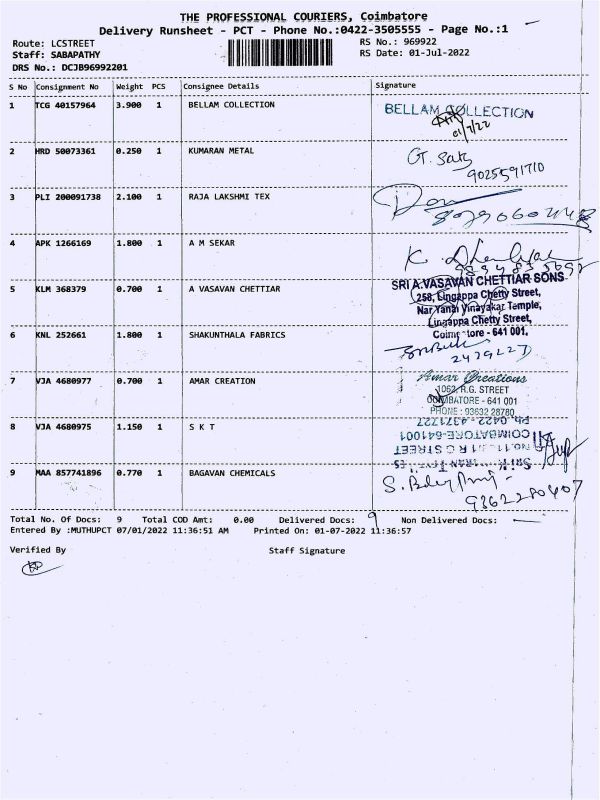 THE PROFESSIONAL COURIERS, Coimbatore
Delivery Runsheet - PCT - Phone No.:0422-3505555 - Page No.:1
Route: LCSTREET RS No.: 969922
Staff: SABAPATHY RS Date: 01-Jul-2022
DRS No.: DCJB96992201
S No Consignment No Weight PCS Consignee Details Signature
1 TCG 40157964 3.900 1 BELLAM COLLECTION BELLAM COLLECTION
01/7/22
2 HRD 50073361 0.250 1 KUMARAN METAL
9025591710
3 PLI 200091738 2.100 1 RAJA LAKSHMI TEX
4 APK 1266169 1.800 1 A M SEKAR
5 KLM 368379 0.700 1 A VASAVAN CHETTIAR SRI A.VASAVAN CHETTIAR SONS
258, Lingappa Chetty Street,
Near Yanai Vinayakar Temple,
Lingappa Chetty Street,
Coimbatore - 641 001.
6 KNL 252661 1.800 1 SHAKUNTHALA FABRICS
2429227
7 VJA 4680977 0.700 1 AMAR CREATION Amar Creations
1062, R.G. STREET
COIMBATORE - 641 001
PHONE : 93632 28780
8 VJA 4680975 1.150 1 S K T
Ph: 0422-4371227
COIMBATORE-641001
R G STREET
9 MAA 857741896 0.770 1 BAGAVAN CHEMICALS
Total No. Of Docs: 9 Total COD Amt: 0.00 Delivered Docs: 9 Non Delivered Docs: —
Entered By :MUTHUPCT 07/01/2022 11:36:51 AM Printed On: 01-07-2022 11:36:57
Verified By Staff Signature